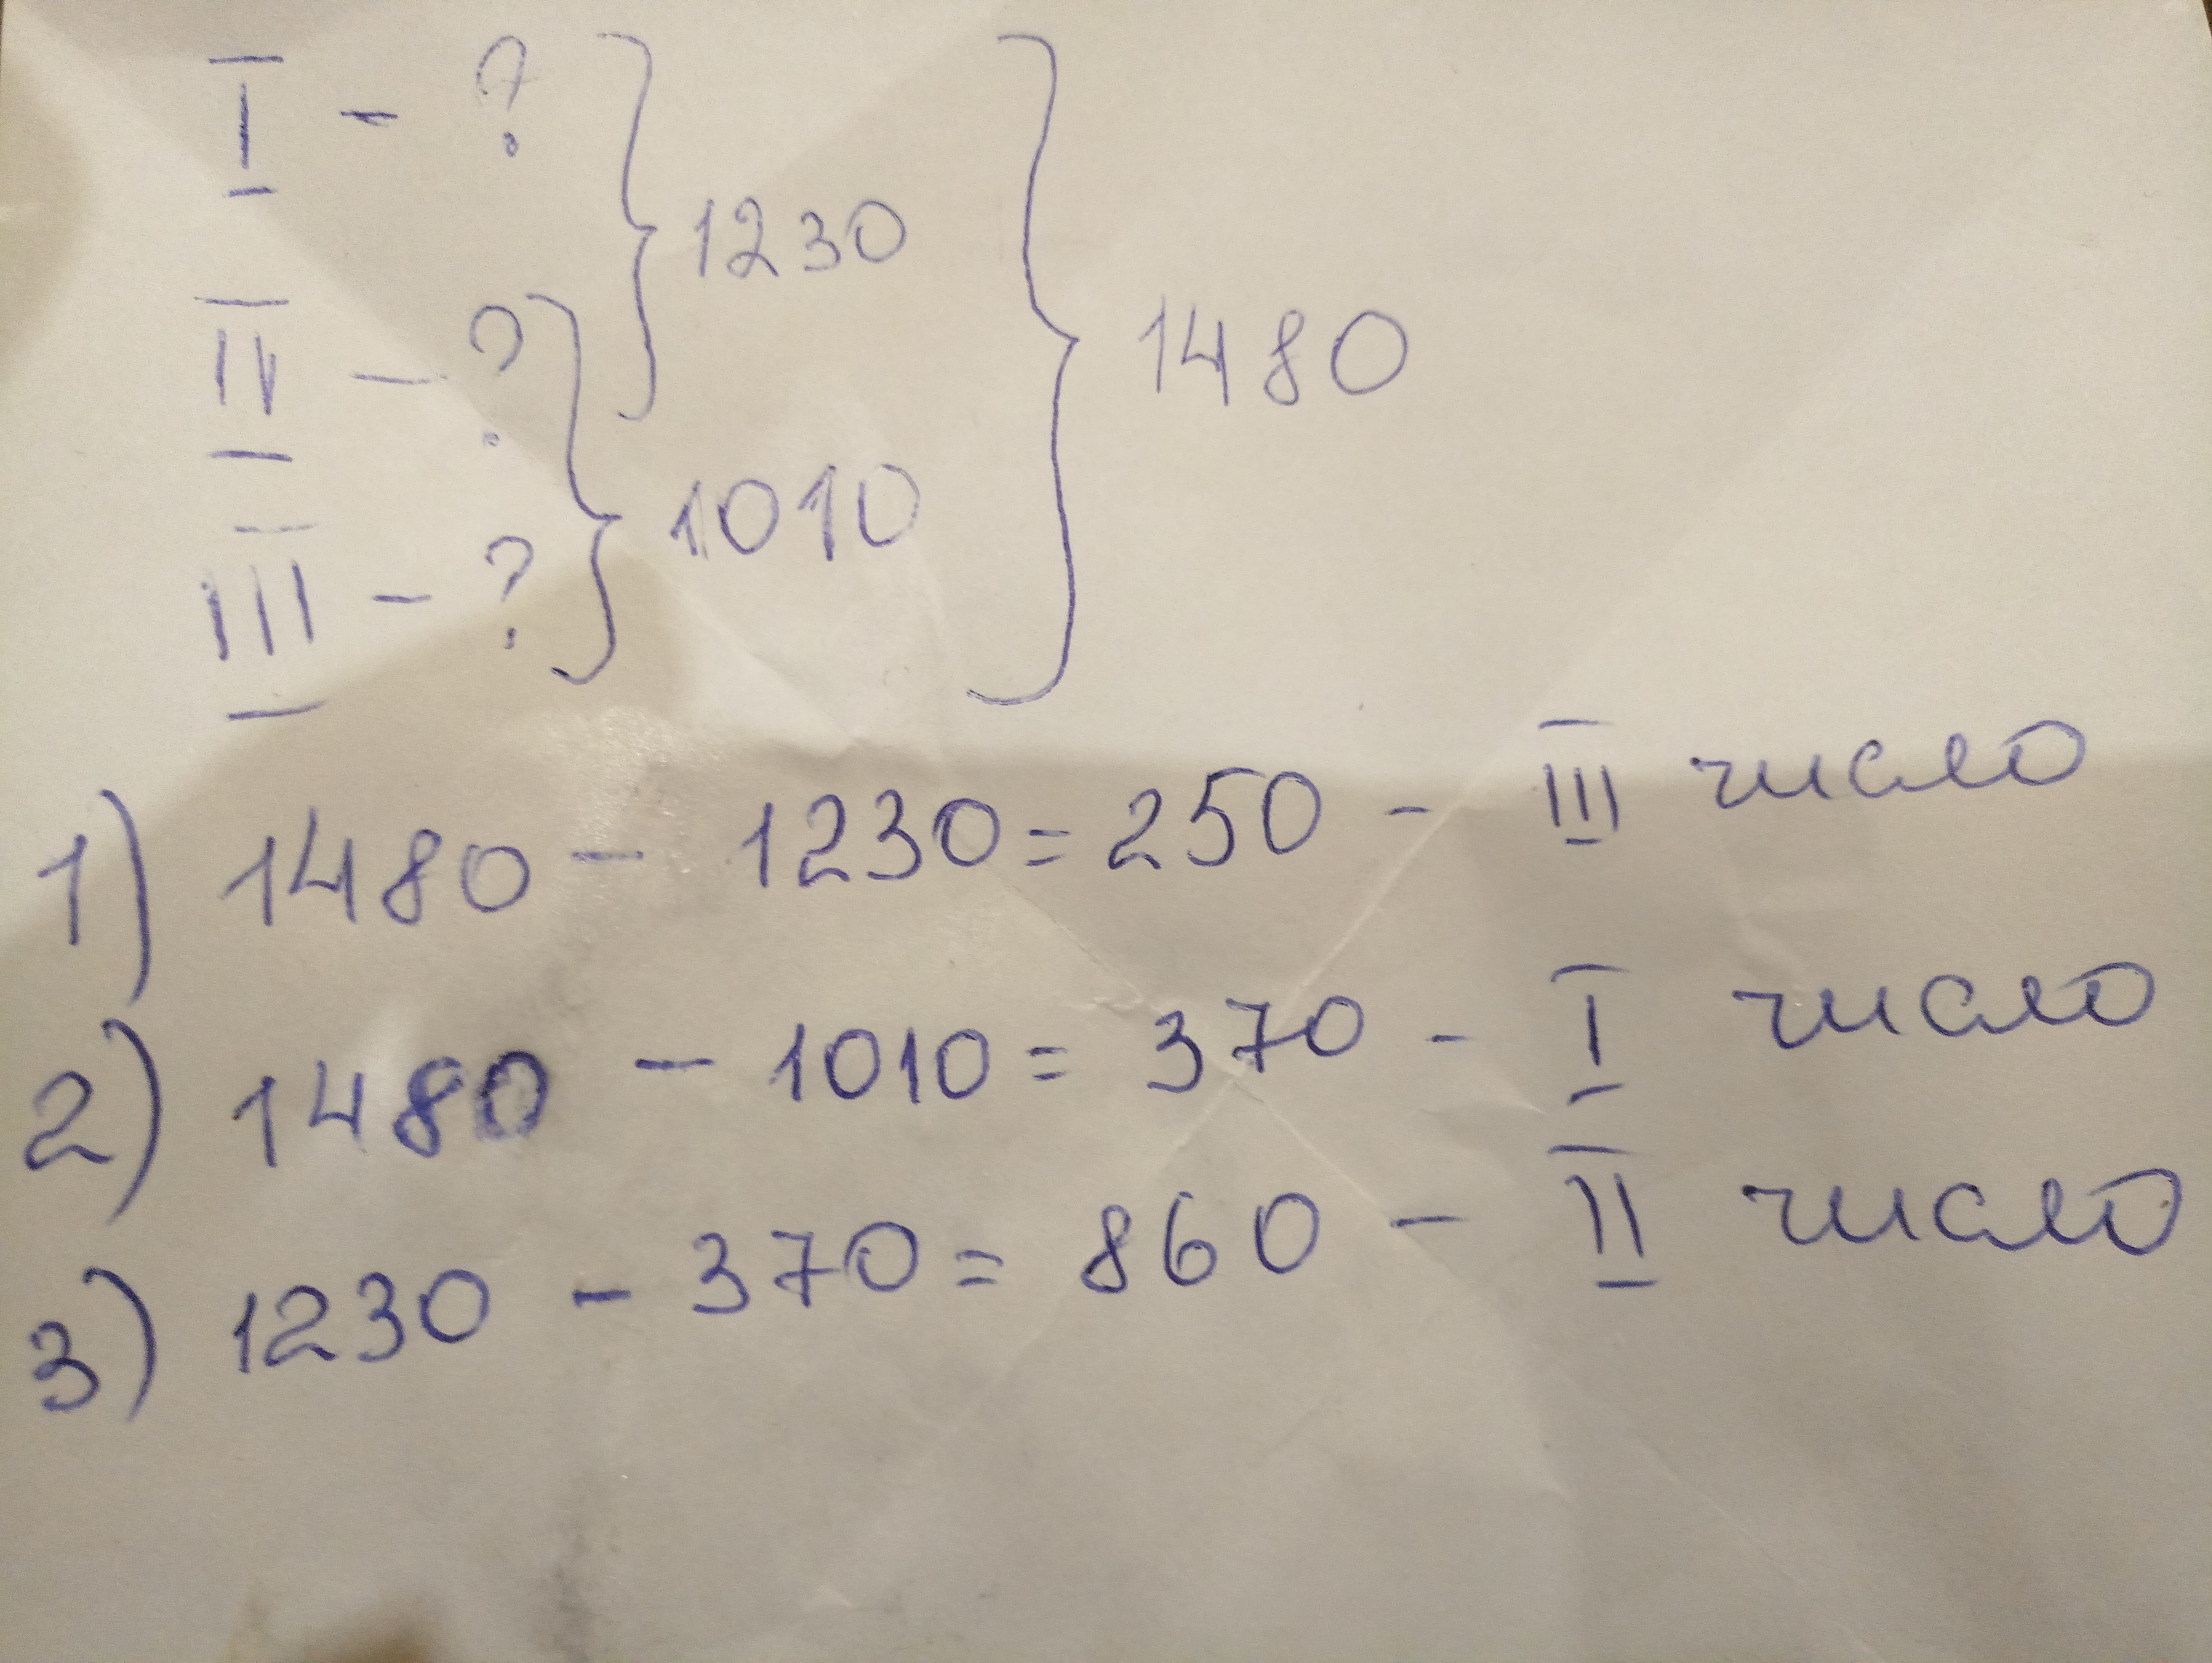 I - ?
1230
II - ?
1480
1010
III - ?
1) 1480 - 1230 = 250 - III число
2) 1480 - 1010 = 370 - I число
3) 1230 - 370 = 860 - II число